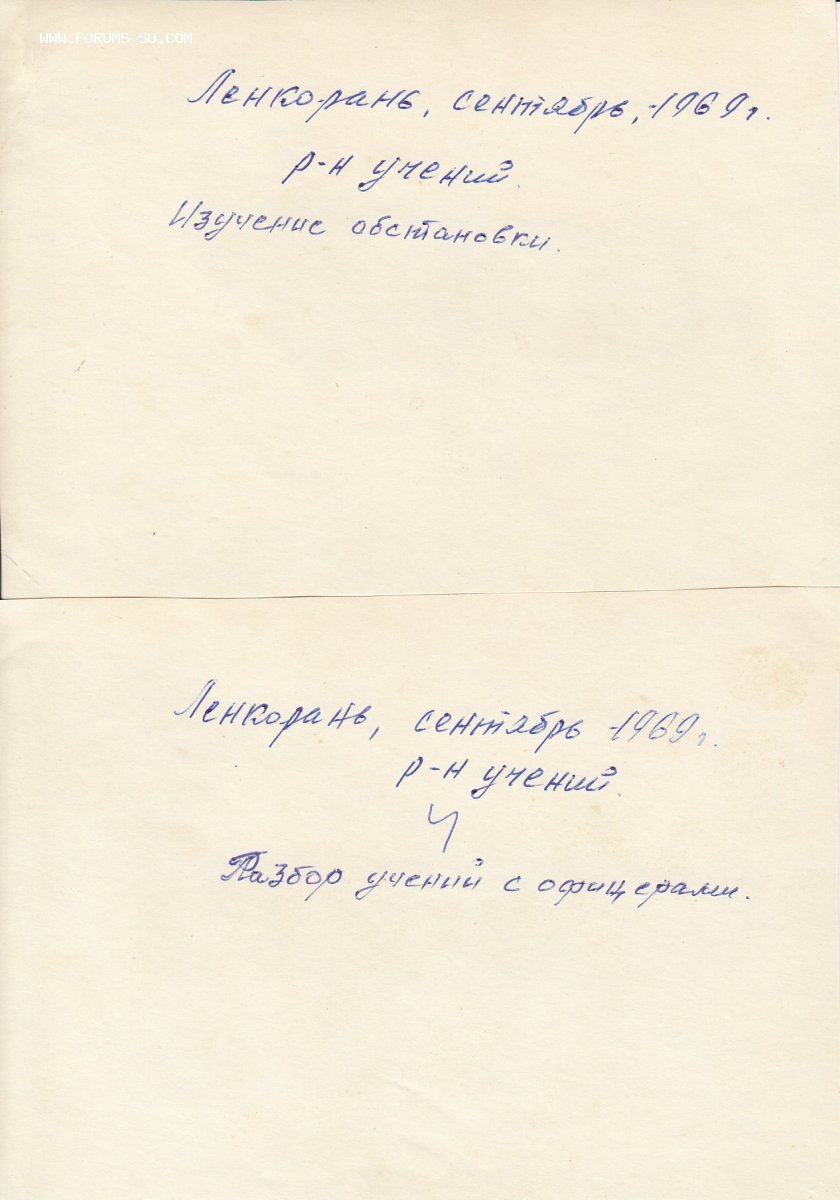 WWW.FORUMS-SU.COM
Ленкорань, сентябрь, -1969г.
р-н учений.
Изучение обстановки.
Ленкорань, сентябрь -1969г.
р-н учений.
Разбор учений с офицерами.